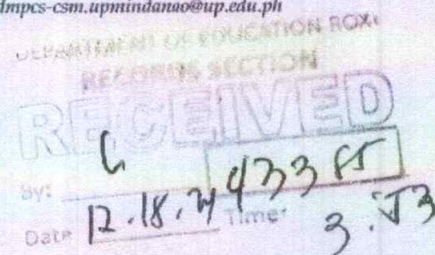 dmpcs-csm.upmindanao@up.edu.ph
DEPARTMENT OF EDUCATION ROX
RECORDS SECTION
RECEIVED
By:
Date 12.18.24 Time: